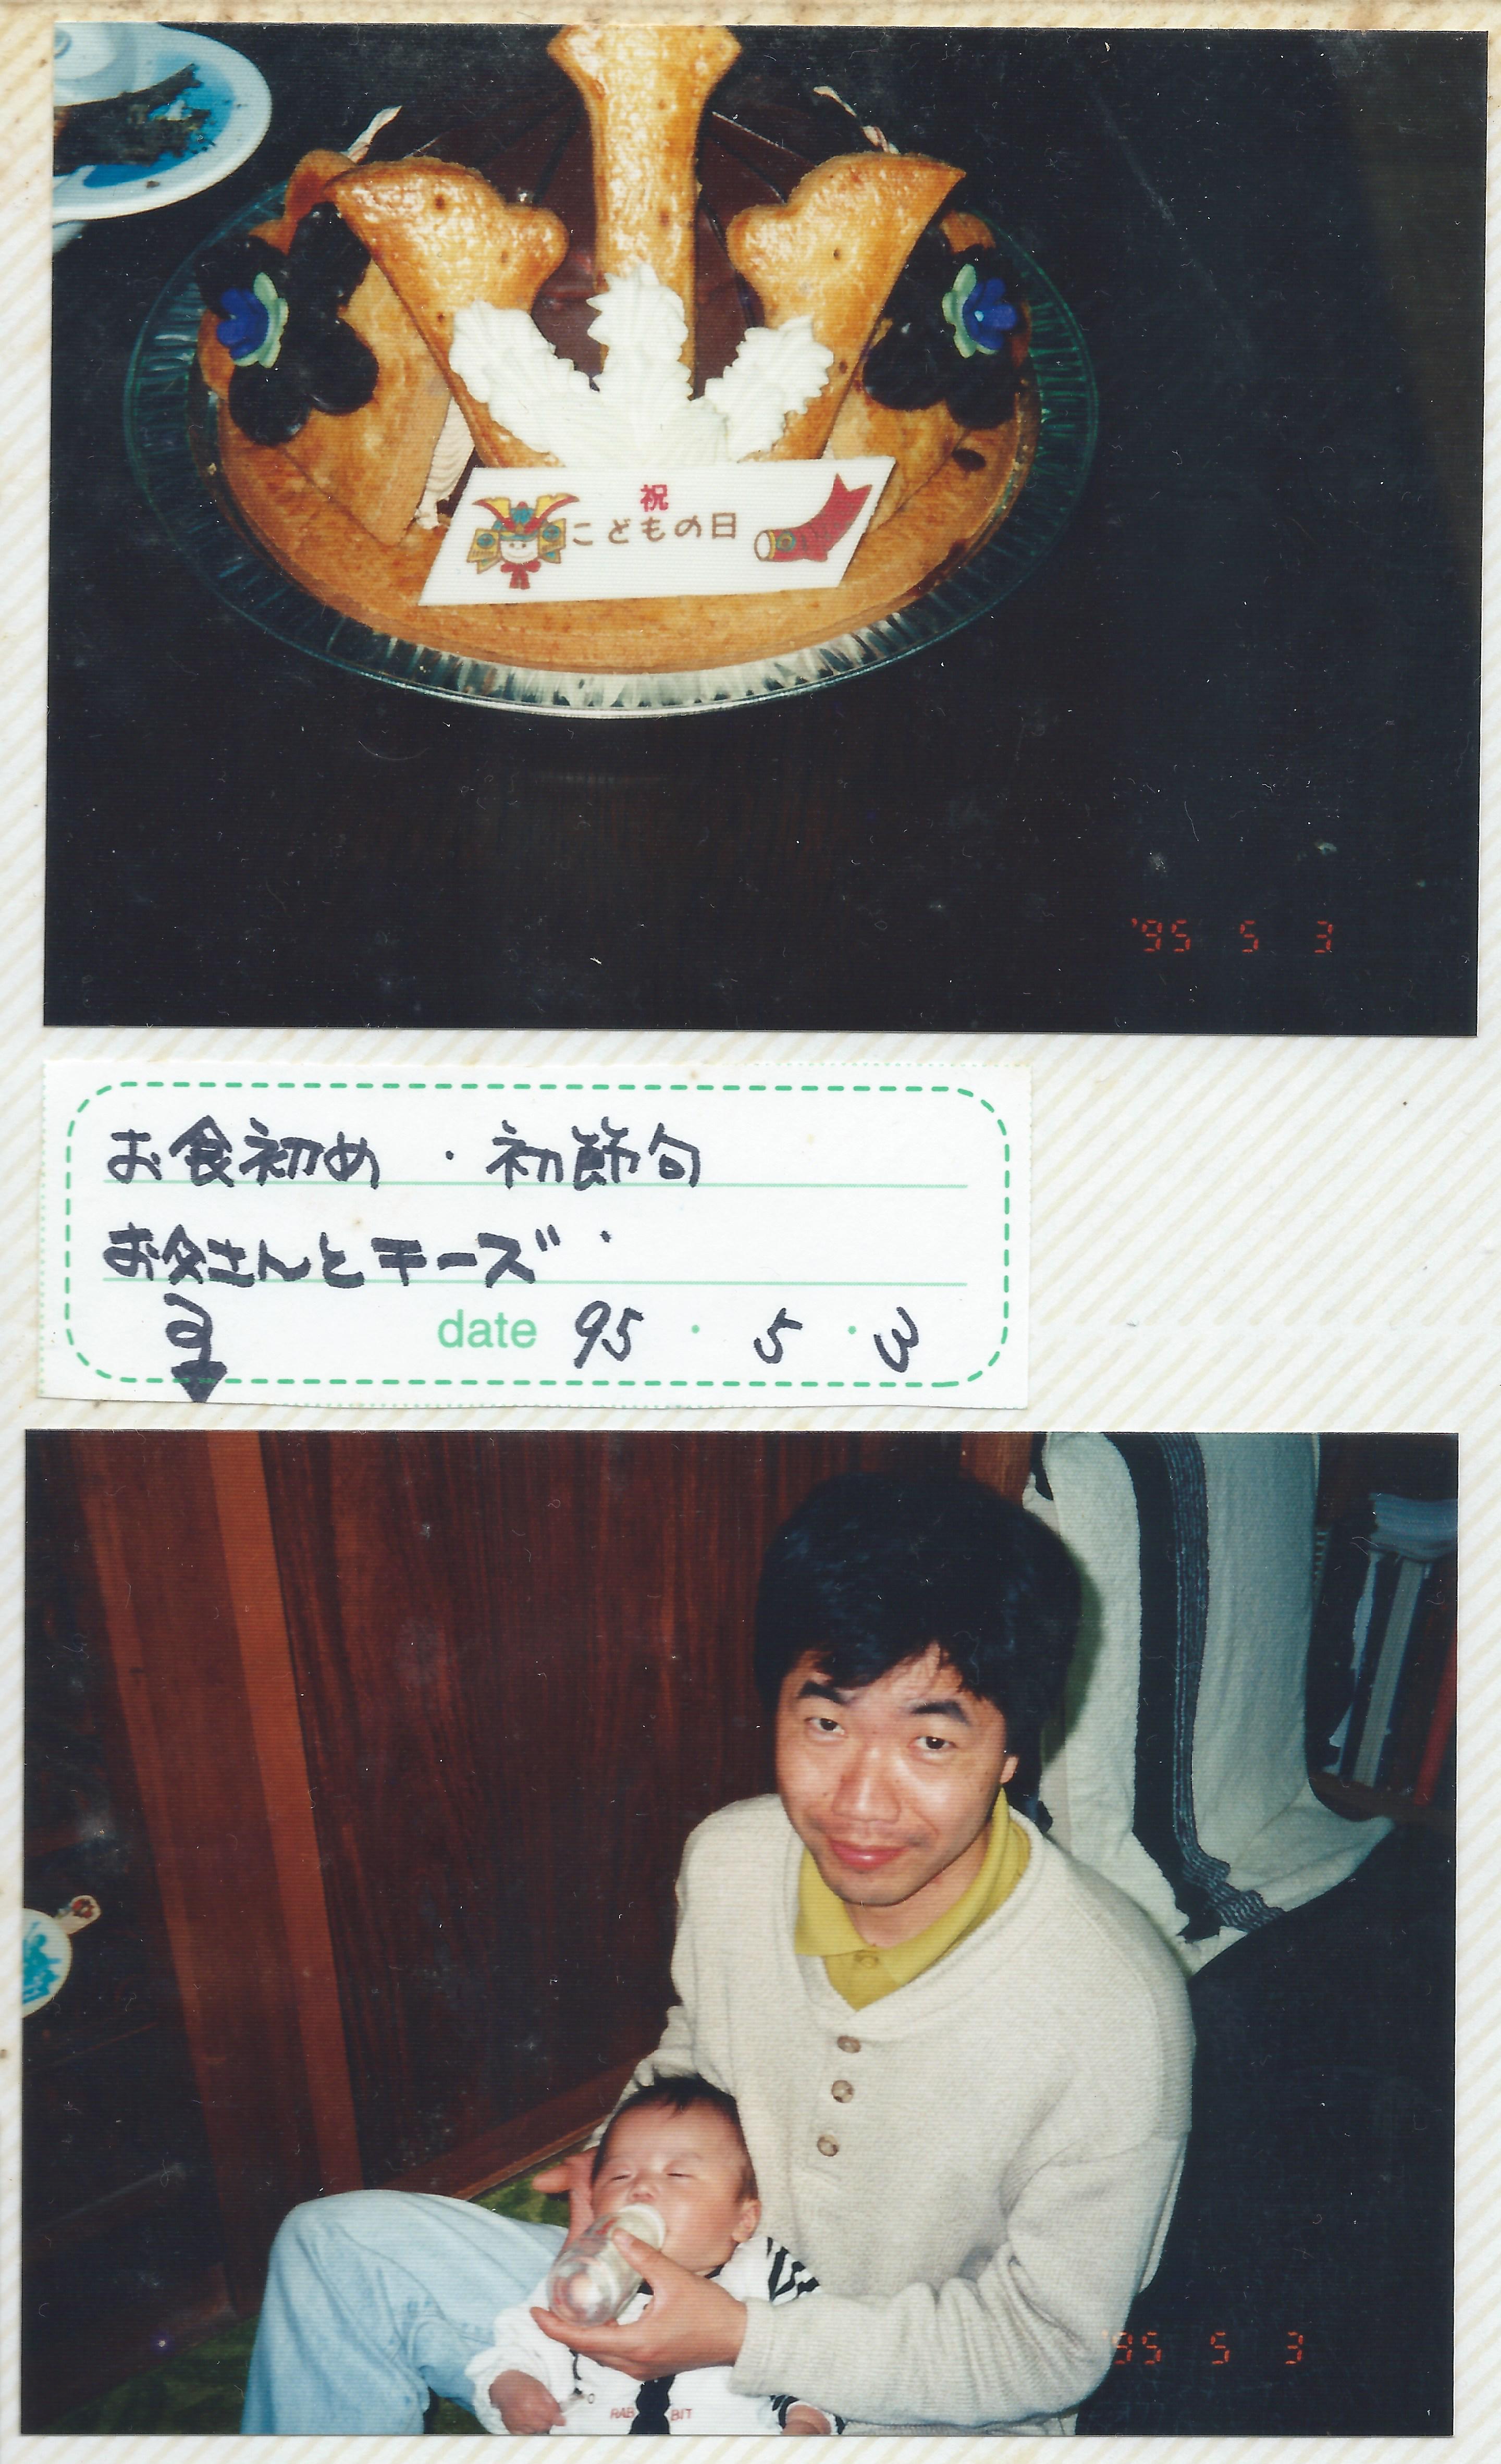 祝
こどもの日
'95 5 3
お食初め・初節句
お父さんとチーズ・
date 95・5・3
RAB BIT
'95 5 3